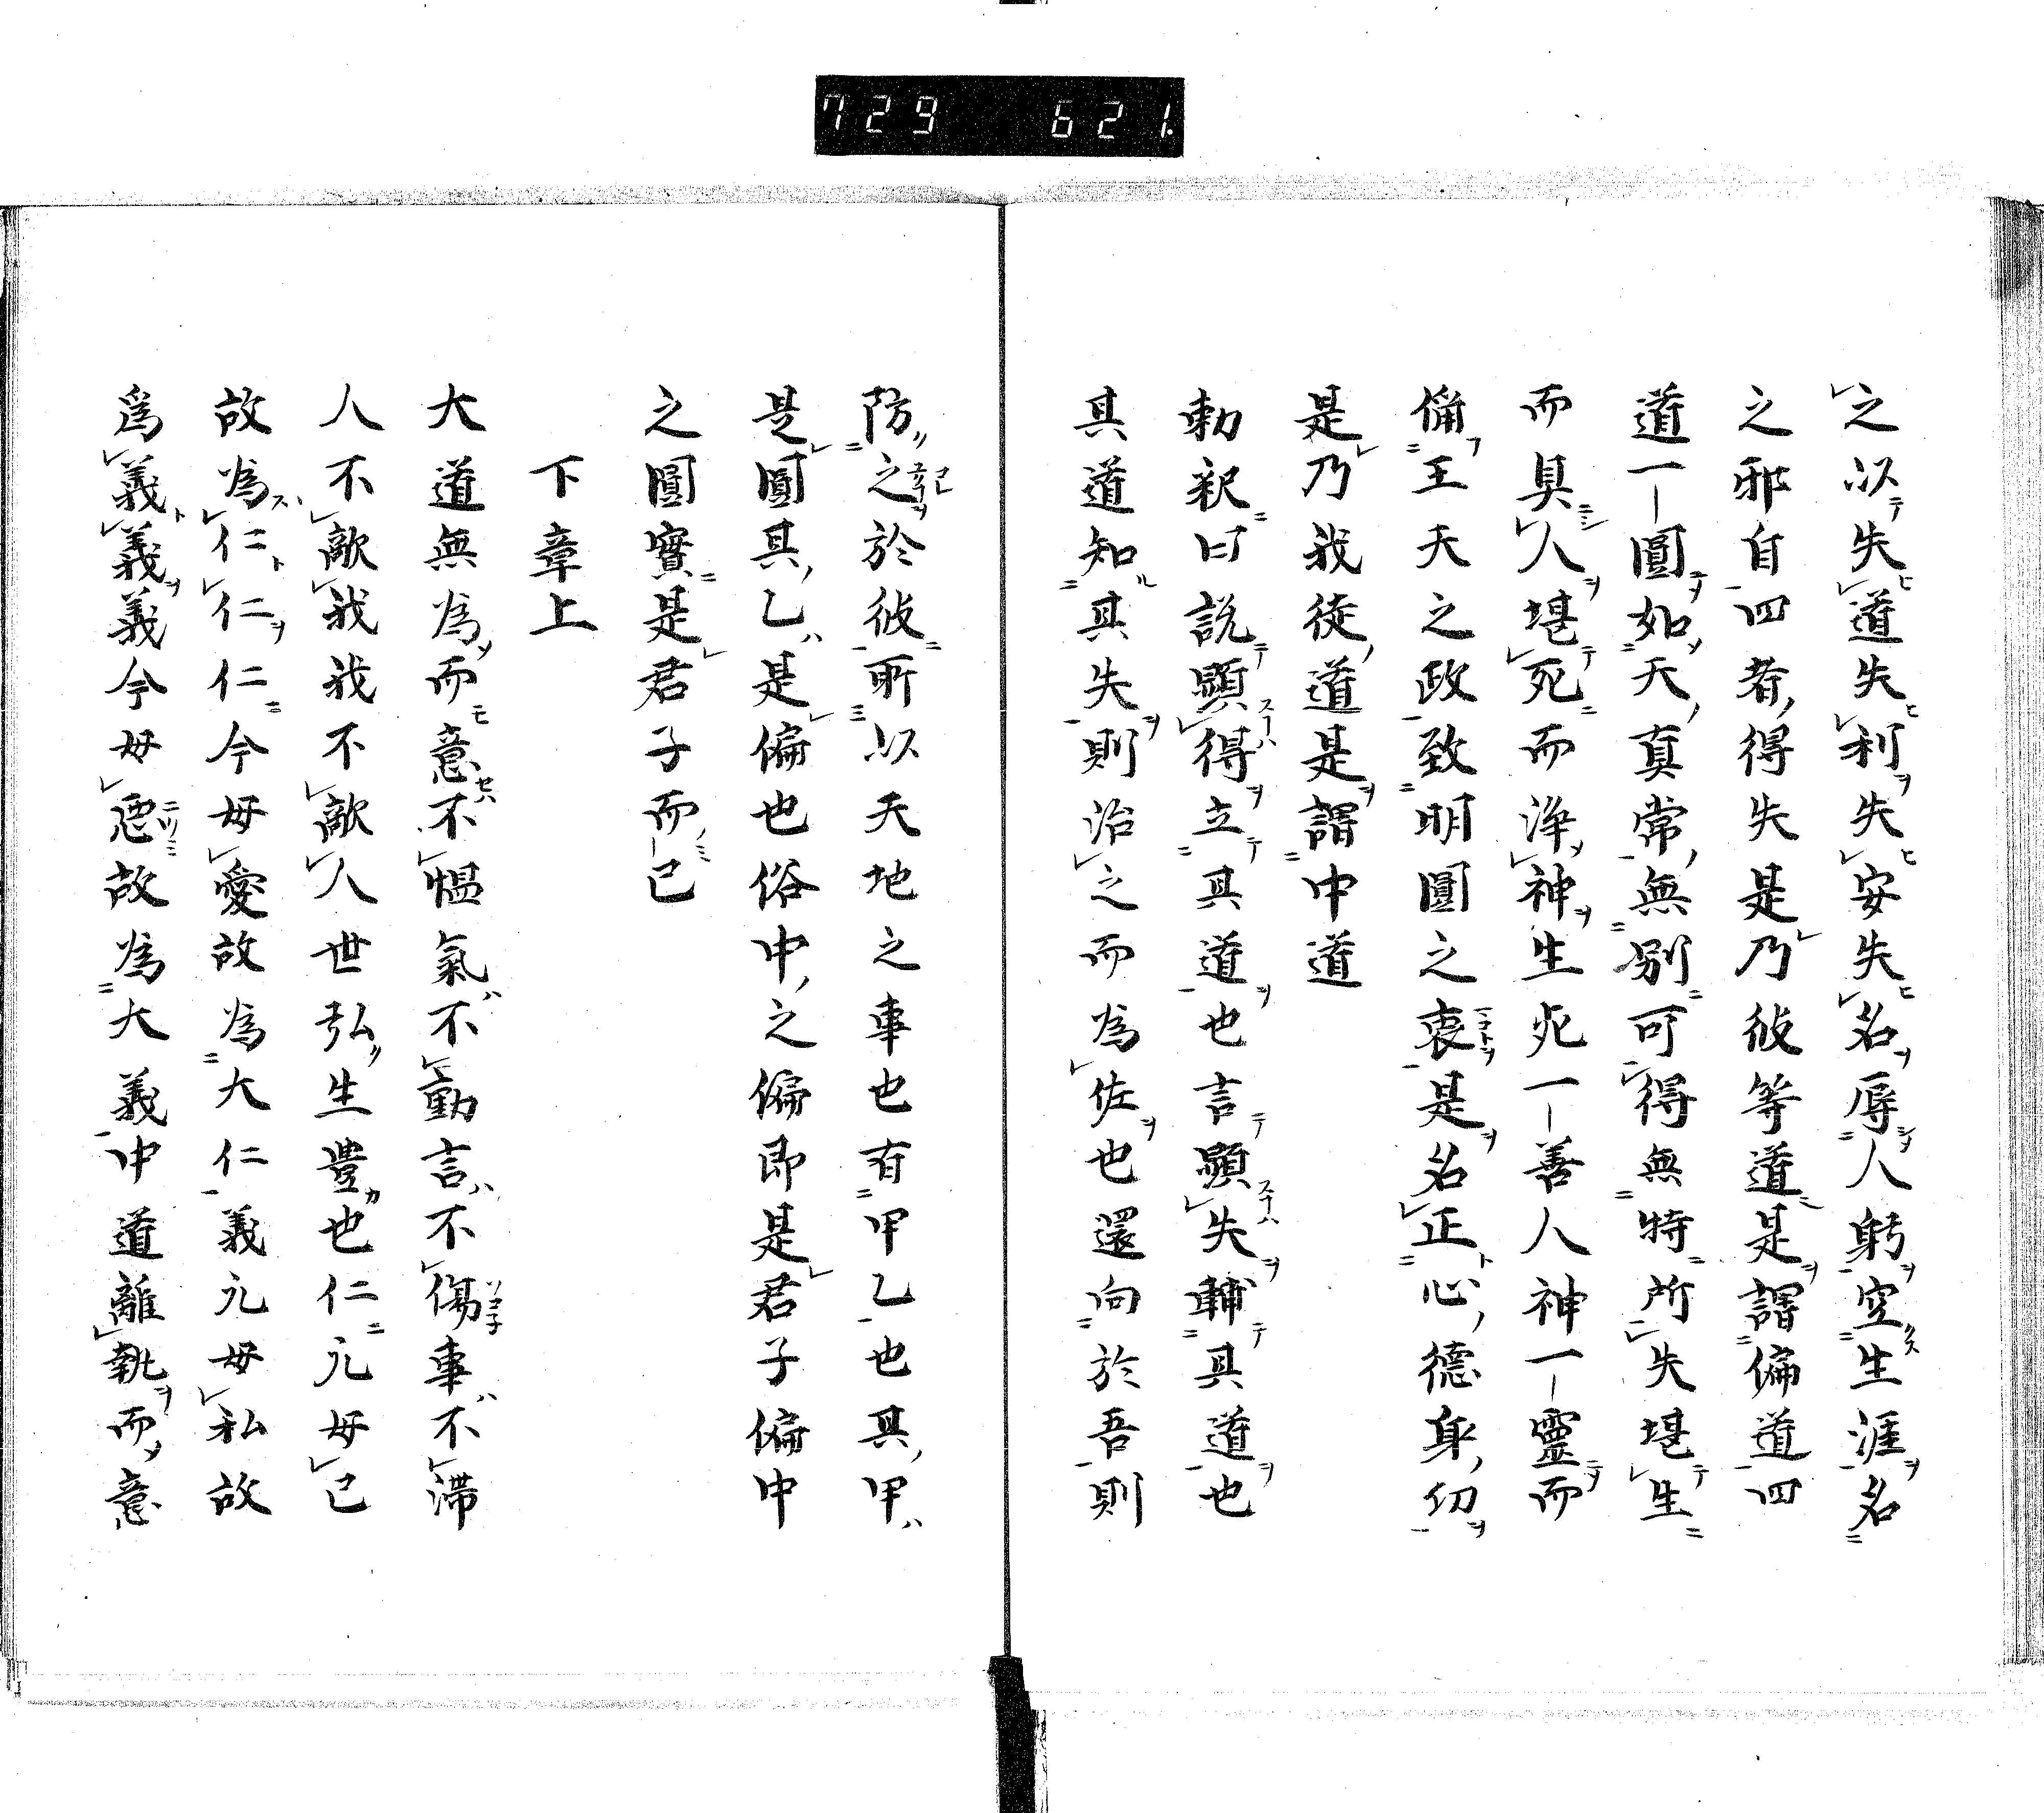 729 621.
之以失道失利失安失名辱人躬空生涯名
之邪自四者得失是乃彼等道是謂偏道四
道一圓如天真常無別可得無特所失堪生
而具人堪死而浄神生死一善人神一靈而
備王天之政致明圓之衷是名正心德身仞
是乃我徒道是謂中道
勅釈曰説顕得立其道也言顕失輔其道也
其道知其失則治之而為佐也還向於吾則
防之於彼所以天地之事也有甲乙也其甲
是圓其乙是偏也俗中之偏即是君子偏中
之圓實是君子而已
下章上
大道無為而意不慍氣不動言不傷事不滞
人不敵我我不敵人世弘生豊也仁元毋己
故為仁仁仁今毋愛故為大仁義元毋私故
為義義義今毋惡故為大義中道離執而意